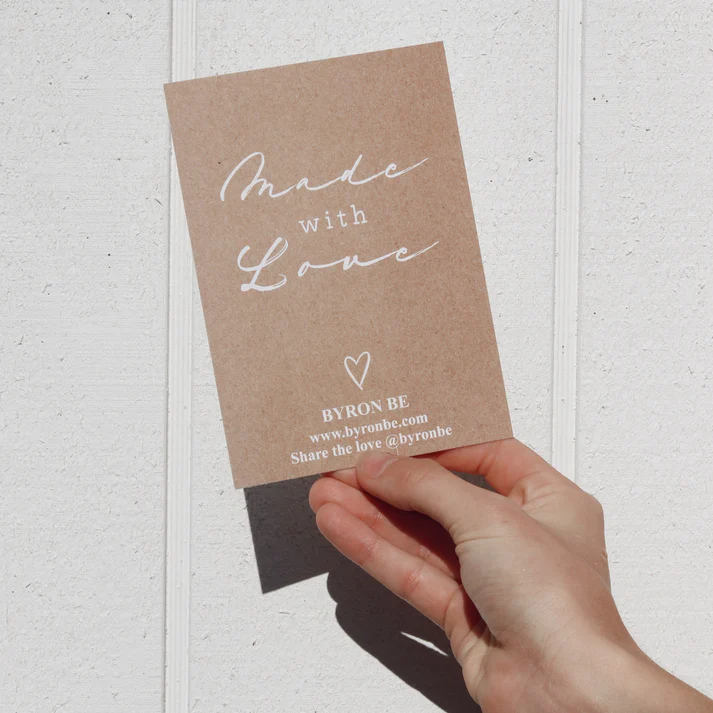 Made
with
Love
BYRON BE
www.byronbe.com
Share the love @byronbe